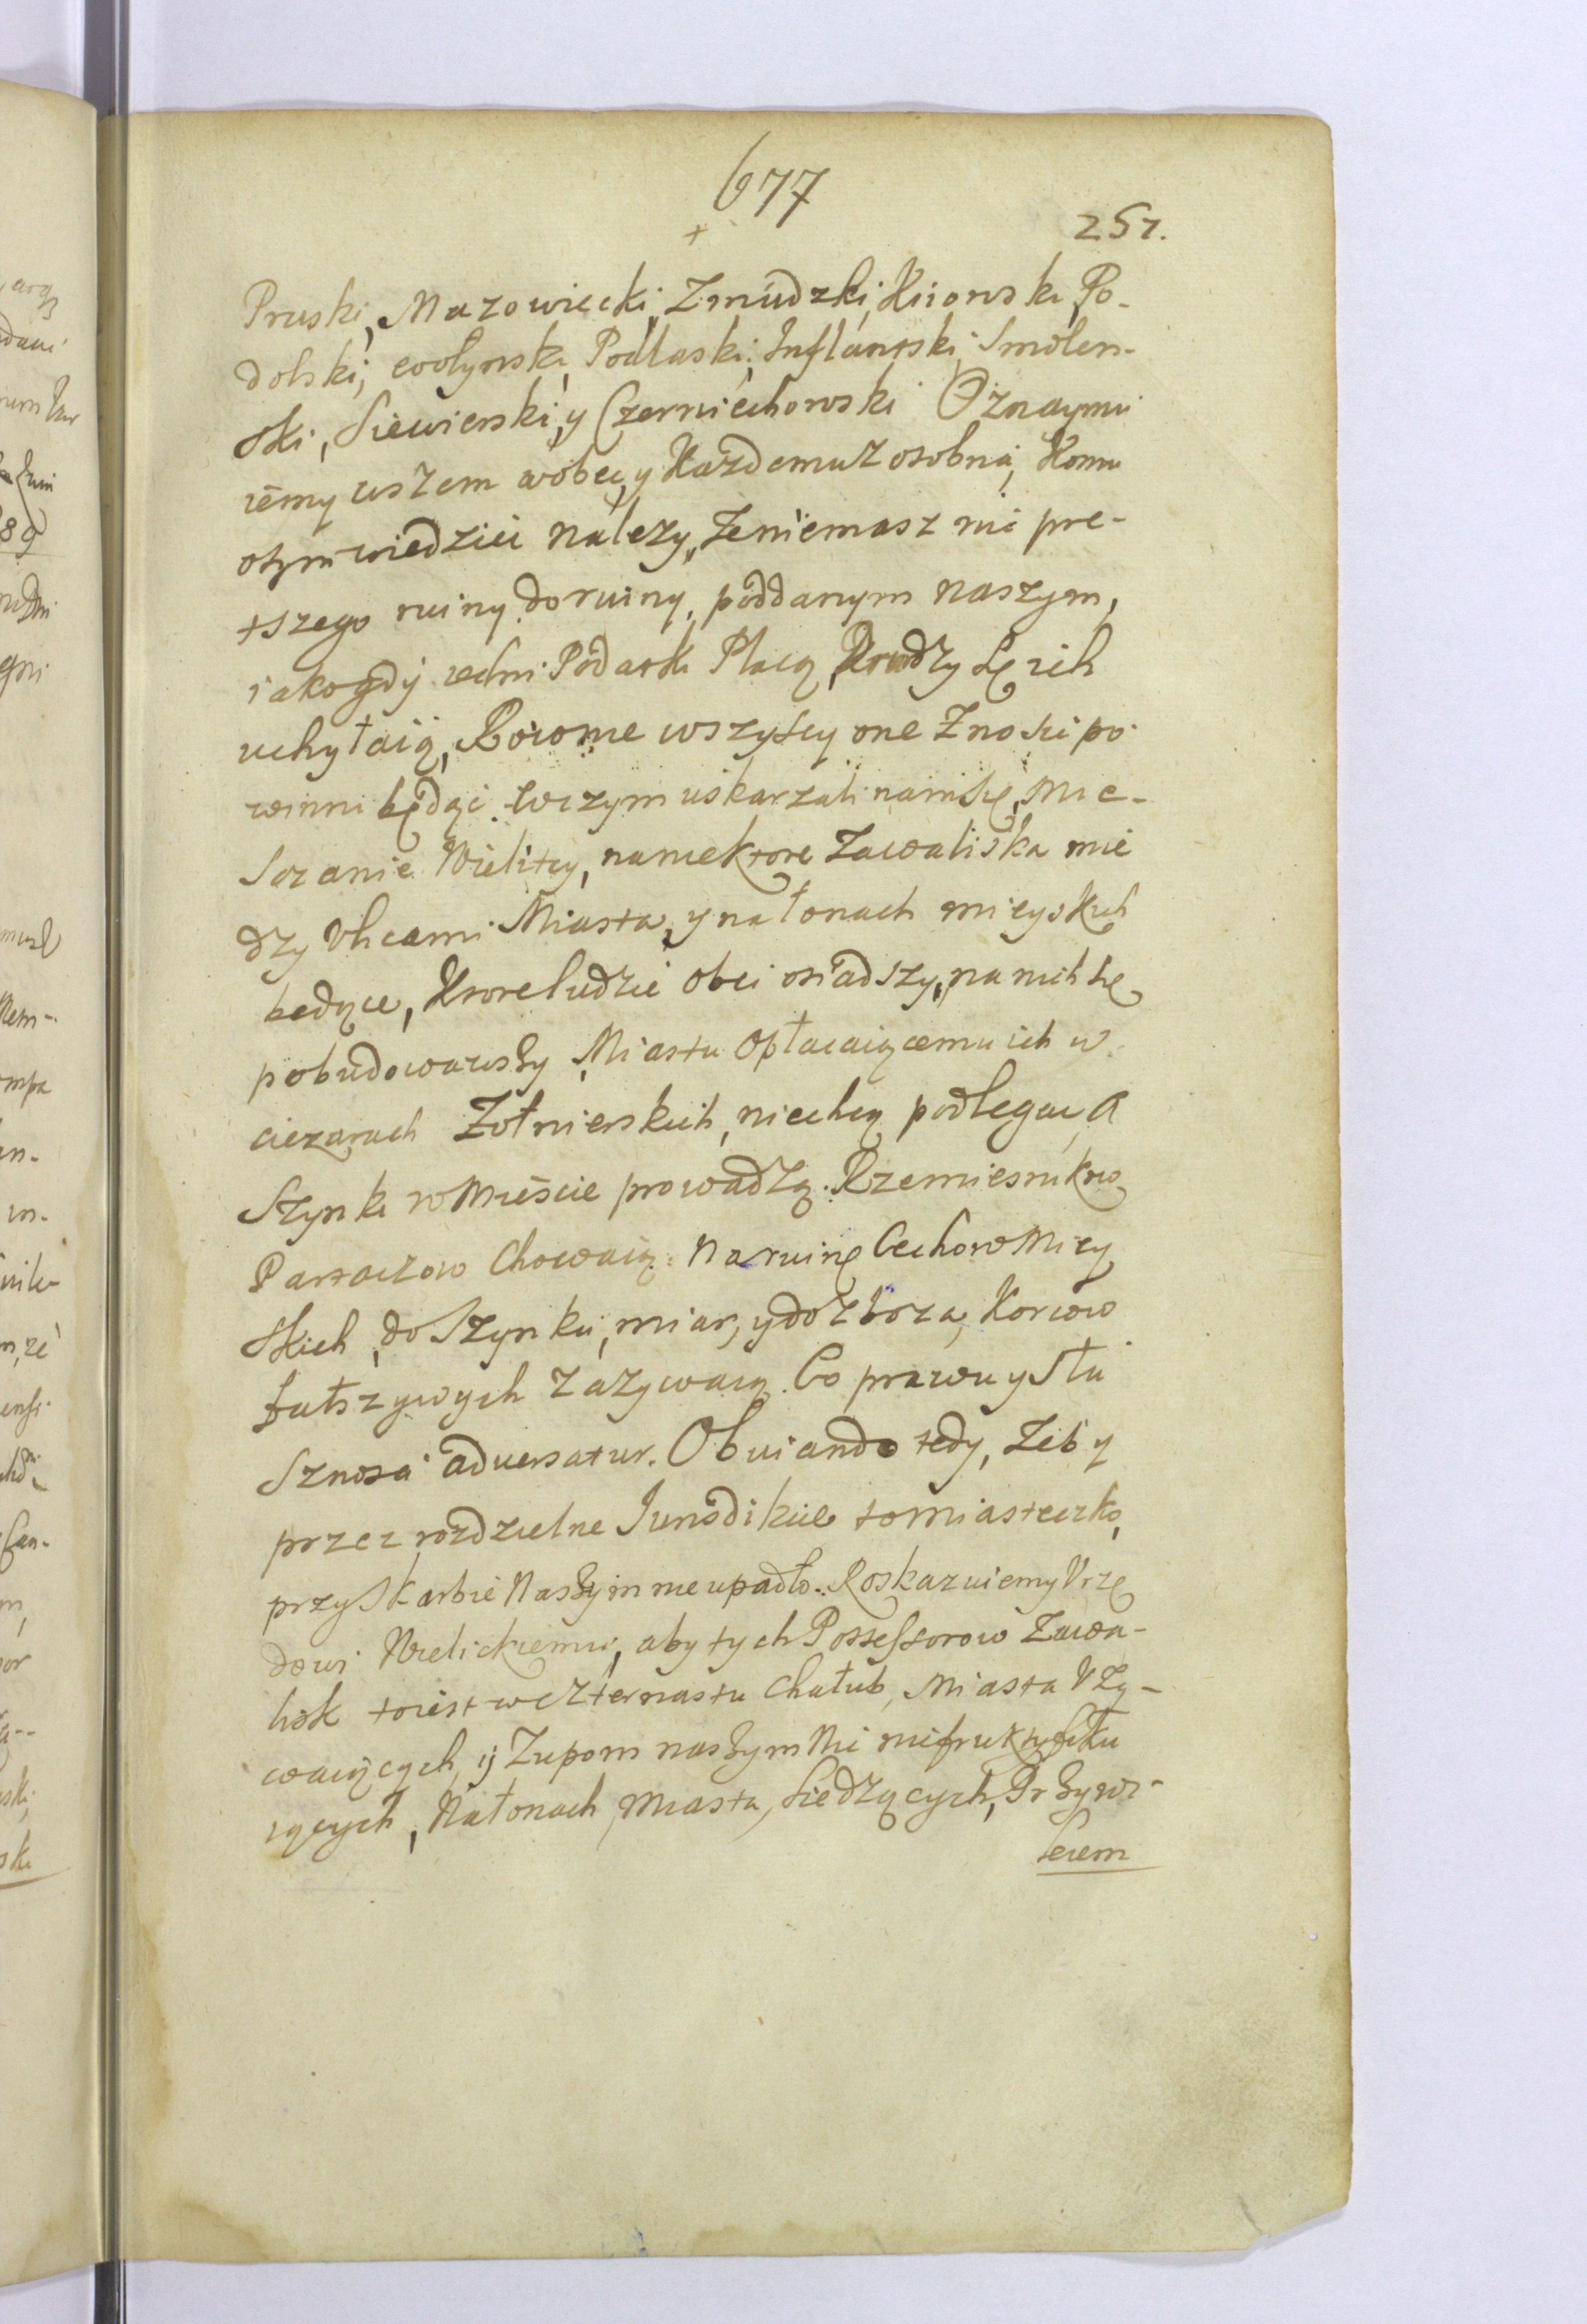 677
+
251.
Pruski, Mazowiecki, Zmudzki, Kiiowski, Po-
dolski, wolynski, Podlaski, Inflantski, Smolen-
ski, Siewierski, y Czerniechowski Oznaymu
iemy wszem wobec, y Kazdemu z osobna, Komu
otym wiedziec nalezy, ze niemasz nic pre-
tszego ruiny do ruiny, poddanym naszym,
iako gdy iedni Podatki Placą, Drudzy Się ich
uchyłaią, Rowne wszyscy one Znosic po-
winni będąc. Wczym uskarzali nam Się, Mie-
Sczanie Wieliccy, na niektore Zawaliska mie
dzy Ulicami Miasta, y na łonach mieyskich
będące, Ktore ludzie obci osiadszy, na nich Się
pobudowawszy Miastu Opłacaiącemu ich w
ciezarach Zołnierskich, niechcą podlegac, A
Szynki w Mieście prowadzą. Rzemiesnikow
Partaczow Chowaią: Na ruinę Cechow Miey
Skich, do Szynku, miar, y do zboza, Korcow
fałszywych zazywaią. Co prawu y Słu
Sznosci adversatur. Obuiando tedy, Zeby
przez rozdzielne Iurisdikcie to miasteczko,
przy Skarbie Naszym nie upadło. Roskazuiemy Urzę
dowi Wielickiemu, aby tych Possessorow Zawa-
lisk toiest w czternastu Chałup, Miasta Uzy-
waiących, y Zupom naszym Nic niefruktyfiku
iących, Na łonach Miasta, Siedzących, Przywi-
leiem